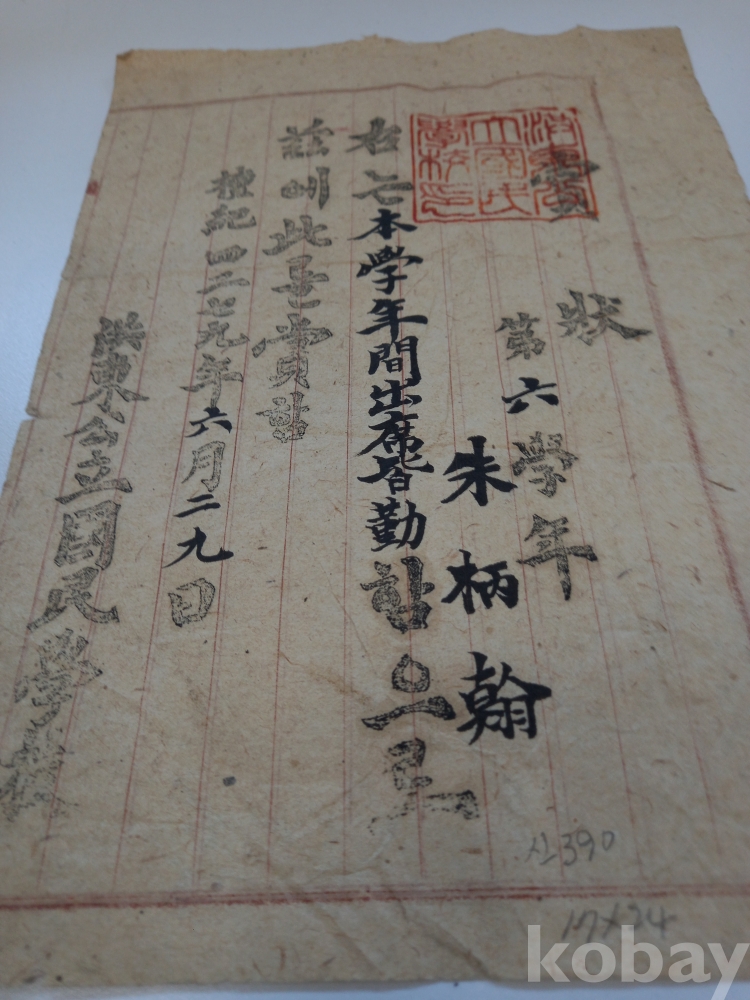 賞狀
第六學年
朱柄翰
右는本學年間出席皆勤함으로
玆에此를賞함
檀紀四二七九年六月二九日
洪東公立國民學校
신390
17×24
kobay